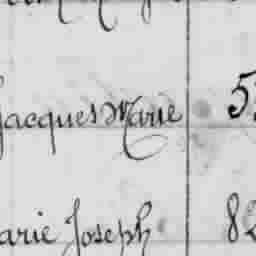 Jacques Marie 5
arie Joseph 82